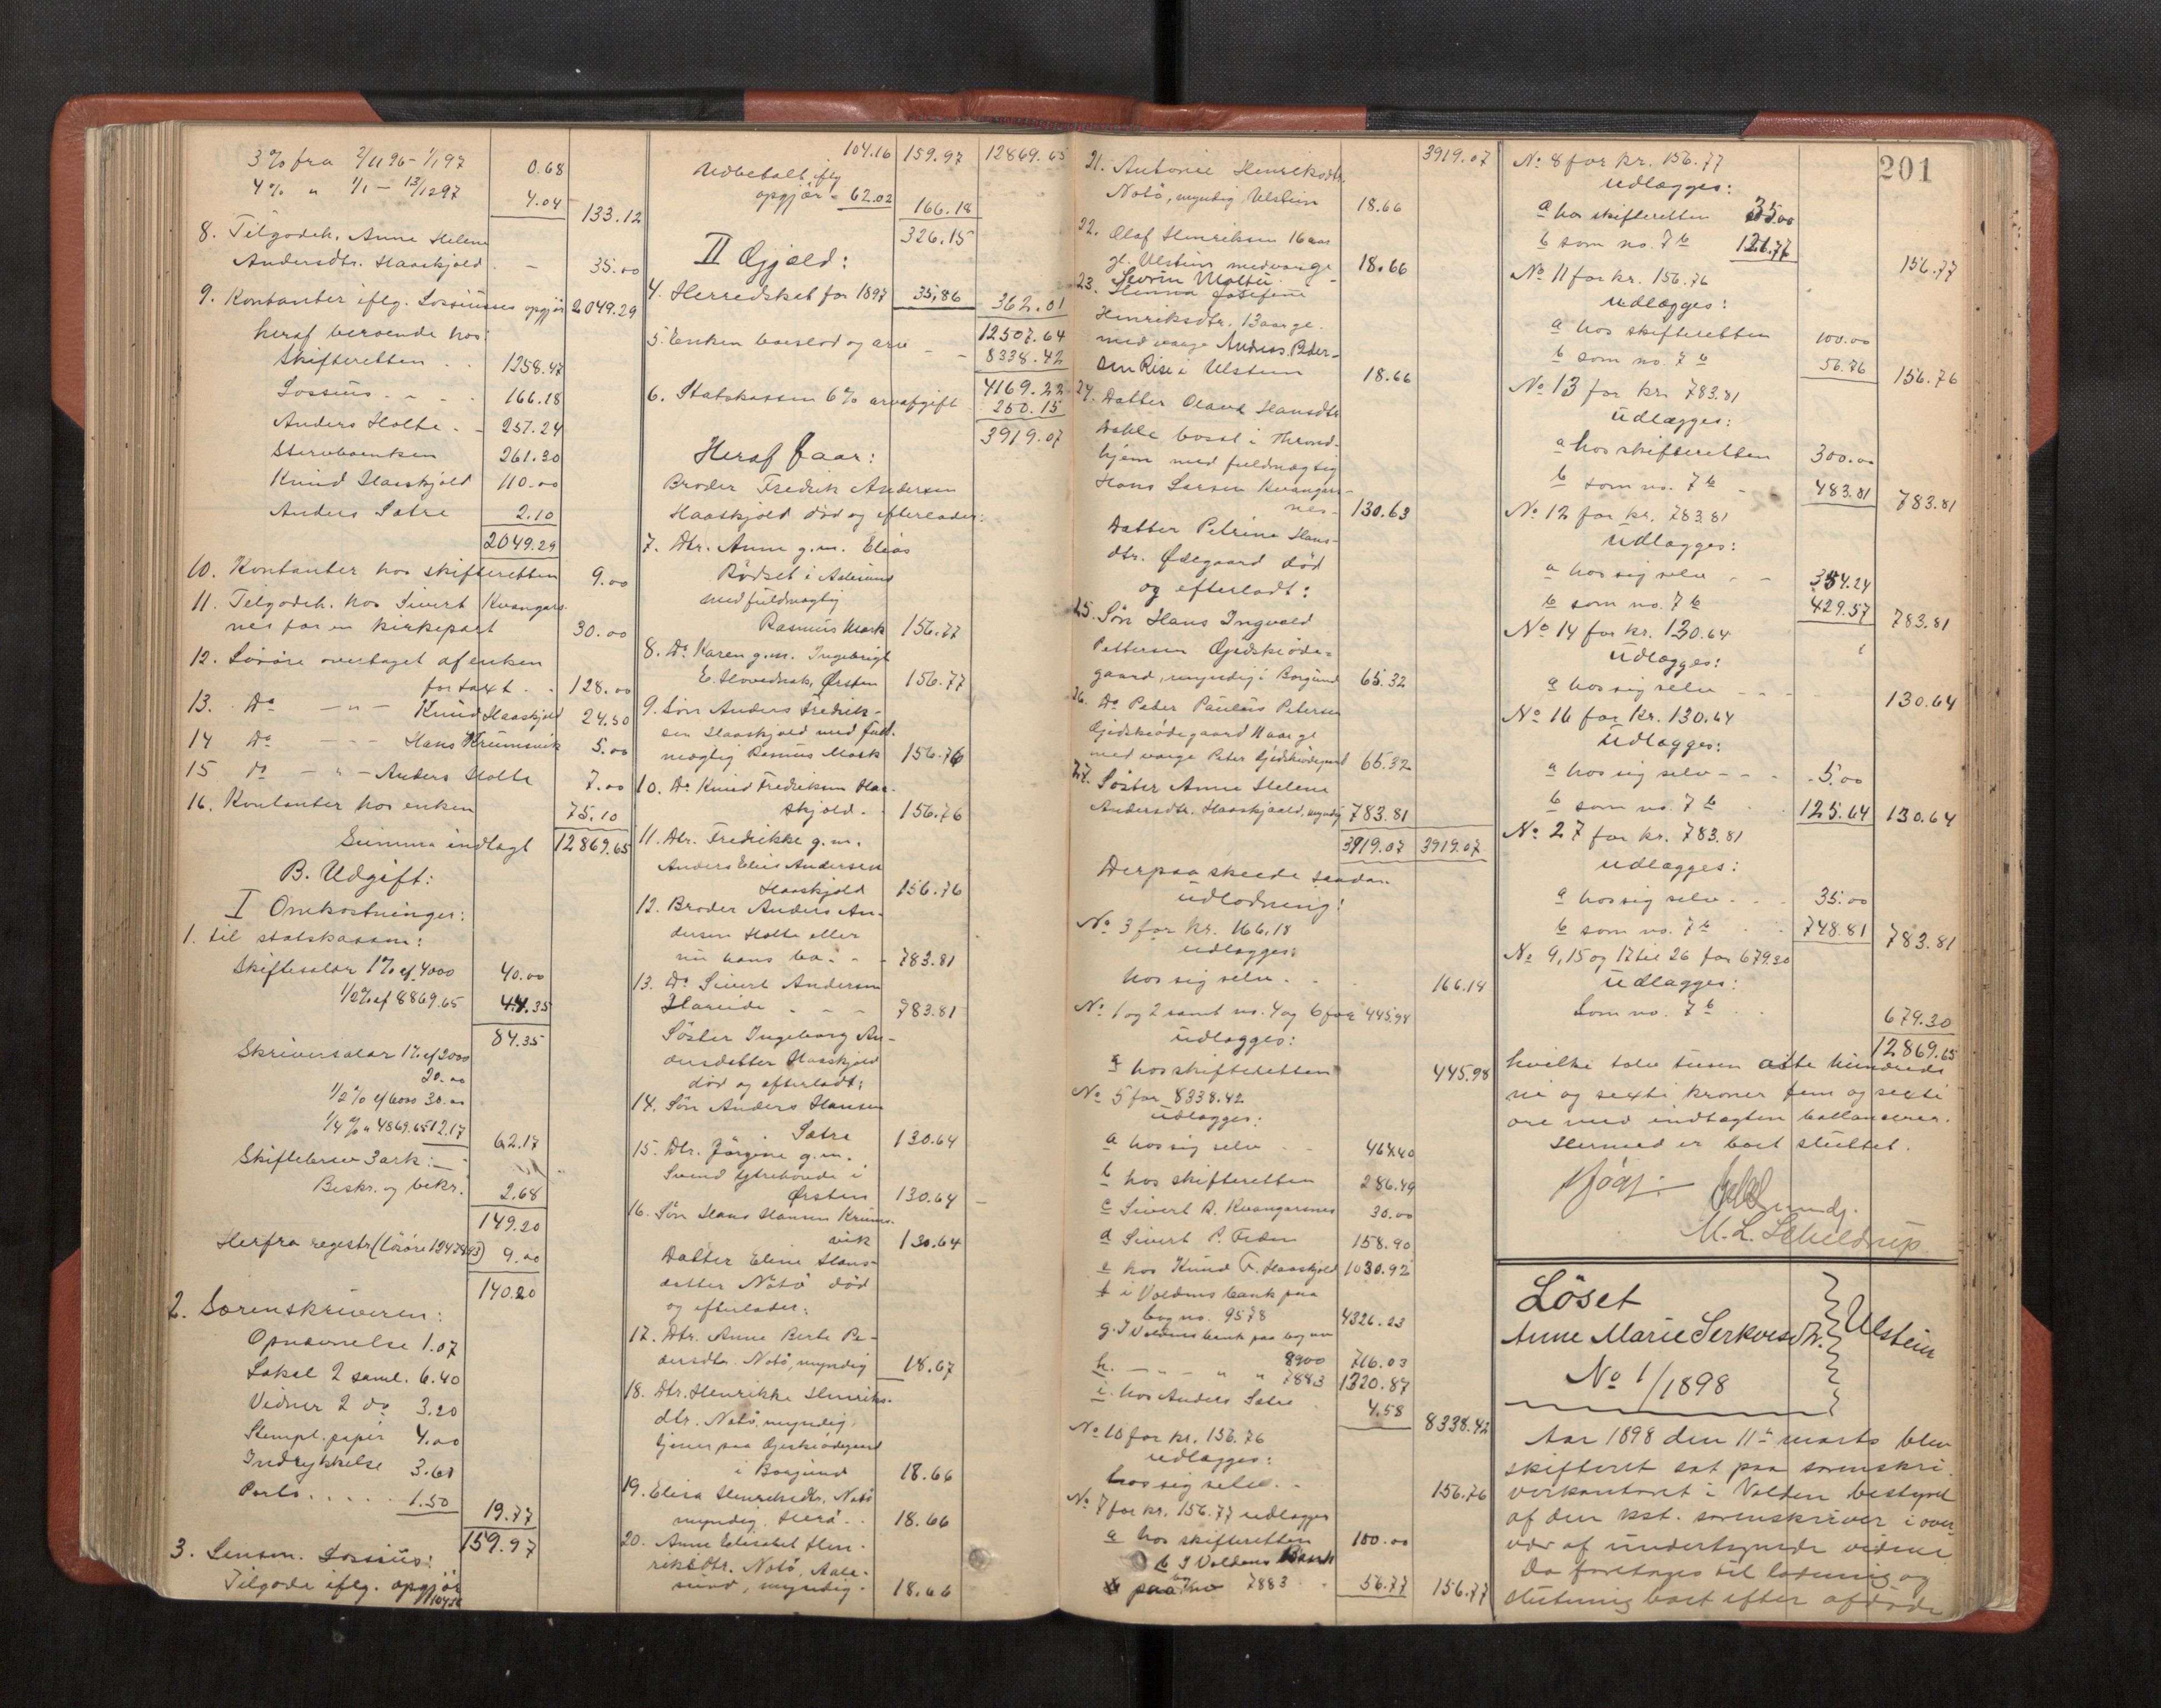 3% fra 2/11 96 - 1/1 97 0.68
4% " 1/1 - 13/12 97 4.04 133.12
8. Tilgodeh. Anne Helene
Andersdtr. Haaskjold - 35.00
9. Kontanter iflg. Lossiuses opgjör 2049.29
heraf beroende hos:
Skifteretten . . 1258.47
Lossius . . . 166.18
Anders Holte . - 257.24
Sterboenken 261.30
Knud Haaskjold 110.00
Anders Satre 2.10
2049.29
10. Kontanter hos skifteretten 9.00
11. Tilgodeh. hos Sivert Kvangars-
nes for en kirkepart 30.00
12. Lösöre overtaget af enken
for taxt . . 128.00
13. Do - " - Knud Haaskjold 24.50
14 Do - - - Hans Krumsvik 5.00
15 do - " - Anders Holte 7.00
16. Kontanter hos enken 75.10
Summa indtægt 12869.65
B. Udgift:
I Omkostninger:
1. til statskassen:
Skiftesalær 1% af 4000 40.00
1/2% af 8869.65 44.35
84.35
Skriversalær 1% af 2000
20.00
1/2% af 6000 30.00
1/4% " 4869.65 12.17 62.17
Skiftebrev 3 ark: -
Beskr. og bekr. 2.68
149.20
Herfra registr. (lösöre 9.00
140.20
2. Sorenskriveren:
Opnævnelse 1.07
Lokal 2 saml. 6.40
Vidner 2 do 3.20
Stempl. papir 4.00
Indrykkelse 3.60
Porto . . . . . 1.50 19.77
159.97
3. Lensm. Lossius:
Tilgode iflg. opgjör
104.16 159.97 12869.65
Udbetalt iflg
opgjör - 62.02 166.18
326.15
II Gjæld:
4. Herredskat for 1897 35.86 362.01
12507.64
5. Enken boeslod og arv - - 8338.42
4169.22
6. Statskassen 6% arveafgift 250.15
3919.07
Heraf faar:
Broder Fredrik Andersen
Haaskjold död og efterlader:
7. Dtr. Anne g.m. Elias
Rödset i Aalesund
med fuldmægtig
Rasmus Mork 156.77
8. Do Karen g.m. Ingebrigt
E. Hovednak, Örsten 156.77
9. Sön Anders Fredrik-
sen Haaskjold med fuld-
mægtig Rasmus Mork 156.76
10. Do Knud Fredriksen Haa-
skjold - 156.76
11. Dtr. Fredrikke g.m.
Anders Elias Andersen
Haaskjold 156.76
12. Broder Anders An-
dersen Holte eller
nu hans bo - - - 783.81
13. Do Sivert Andersen
Hareide - - - 783.81
Söster Ingeborg An-
dersdatter Haaskjold
död og efterladt:
14. Sön Anders Hansen
Satre 130.64
15. Dtr. Jörgine g.m.
Svend Ytrehovde i
Örsten 130.64 -
16. Sön Hans Hansen Krums-
vik 130.64
Datter Eline Hans-
datter Notö död
og efterlader:
17. Dtr. Anne Berte Pe-
dersdtr. Notö, myndig 18.67
18. Dtr. Henrikke Henriks-
dtr. Notö, myndig,
tjener paa Gjeskiödegaard
i Borgund 18.66
19. Elisa Henriksdtr. Notö
myndig, Herö . . 18.66
20. Anne Elisabet Hen-
riksdtr. Notö, Aale-
sund, myndig. 18.66
3919.07
21. Antonie Henriksdtr.
Notö, myndig Ulstein 18.66
22. Olaf Henriksen 16 aar
gl. Ulstein med værge 18.66
Severin Moltu -
23. Henna Josefine
Henriksdtr. 13 aar gl.
med værge Andreas Peder-
sen Rise i Ulstein 18.66
24. Datter Olave Hansdtr.
Dahle bosat i Thrond-
hjem med fuldmægtig
Hans Larsen Kvangars-
nes - 130.63
Datter Petrine Hans-
dtr. Ödegaard död
og efterladt:
25. Sön Hans Ingvald
Pettersen Gjedskiöde-
gaard, myndig i Borgund 65.32
26. Do Peter Paulus Petersen
Gjedskiödegaard 11 aar gl
med værge Peter Gjedskiödegaard 65.32
27. Söster Anne Helene
Andersdtr. Haaskjold, myndig 783.81
3919.07 3919.07
Derpaa skeede saadan
udlodning:
No 3 for kr. 166.18
udlægges:
hos sig selv . . 166.14
No 1 og 2 samt no. 4 og 6 for 445.98
udlægges:
a hos skifteretten 445.98
No 5 for 8338.42
udlægges:
a hos sig selv . . 464.40
b hos skifteretten 286.49
c Sivert A. Kvangarsnes 30.00
d Sivert P. 158.90
e hos Knud F. Haaskjold 1030.92
f i Voldens bank paa
bog no. 9578 4326.23
g. I Voldens bank paa bog no
8900 716.03
h. - " - " " 7883 1320.87
i. hos Anders Satre 4.58
8338.42
No 10 for kr. 156.76
udlægges:
hos sig selv. - 156.76
No 7 for kr. 156.77 udlægges
a hos skifteretten 100.00
b I Voldens Bank
paa bog no 7883 56.77 156.77
201
No 8 for kr. 156.77
udlægges:
a hos skifteretten 35.00
b som no. 7 b 121.77 156.77
No 11 for kr. 156.76
udlægges:
a hos skifteretten 100.00
b som no. 7 b 56.76 156.76
No 13 for kr. 783.81
udlægges:
a hos skifteretten 300.00
b som no. 7 b - 483.81 783.81
No 12 for kr. 783.81
udlægges:
a hos sig selv - - 354.24
b som no. 7 b 429.57 783.81
No 14 for kr. 130.64
udlægges:
a hos sig selv - - - 130.64
No 16 for kr. 130.64
udlægges:
a hos sig selv - - - 5.00
b som no. 7 b 125.64 130.64
No 27 for kr. 783.81
udlægges:
a hos sig selv - . . 35.00
b som no. 7 b . . 748.81 783.81
No 9, 15 og 17 til 26 for 679.30
udlægges:
Som no. 7 b . . 679.30
12869.65
hvilke tolv tusen otte hundrede
ni og sexti kroner fem og sexti
öre med indtægten ballancerer.
Hermed er boet sluttet.
M. L. Schieldrup.
Löset
Anne Marie Serkvesdtr. Ulstein
No 1/1898
Aar 1898 den 11te marts blev
skifteret sat paa sorenskri-
verkontoret i Volden bestyret
af den kst. sorenskriver i over-
vær af undertegnede vidner.
Da foretages til lösning og
slutning boet efter afdöde